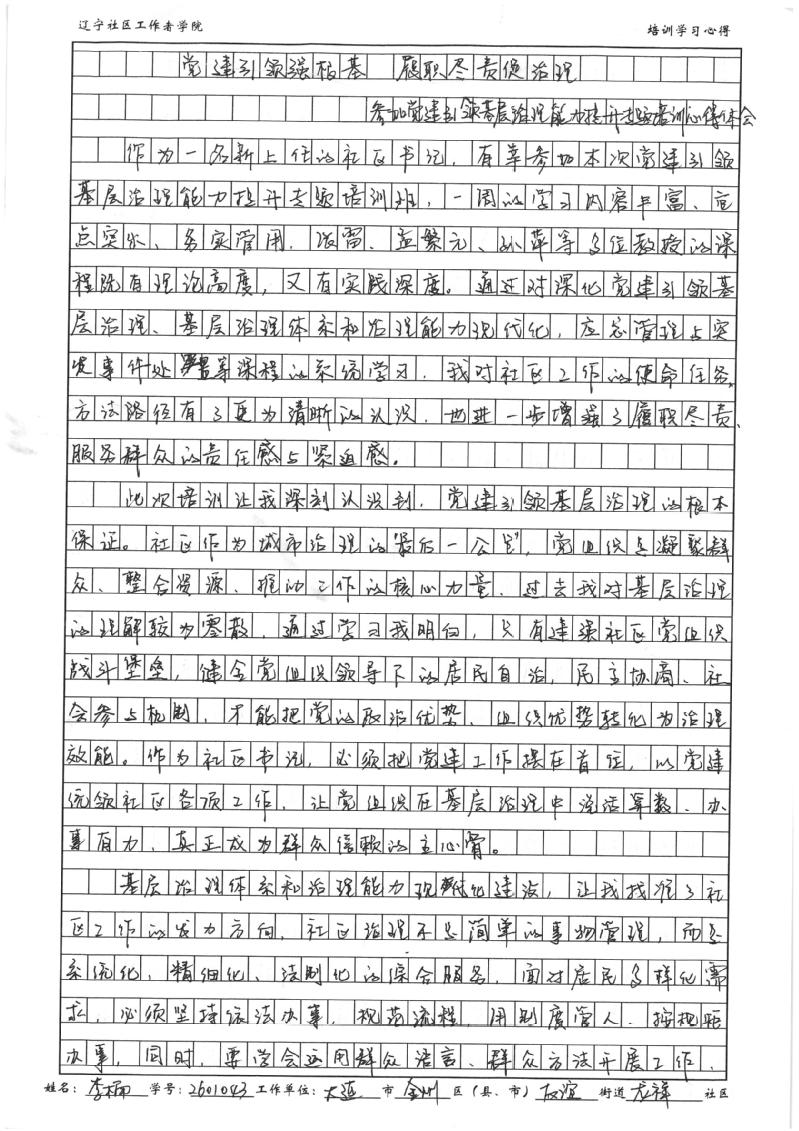 辽宁社区工作者学院 培训学习心得
党建引领强根基 履职尽责促治理
参加党建引领基层治理能力提升专题培训心得体会
作为一名新上任的社区书记，有幸参加本次党建引领
基层治理能力提升专题培训班，一周的学习内容丰富、重
点突出、务实管用，孟繁元、孙萍等多位教授的课
程既有理论高度，又有实践深度。通过对深化党建引领基
层治理、基层治理体系和治理能力现代化，应急管理与突
发事件处置等课程的系统学习，我对社区工作的使命任务，
方法路径有了更为清晰的认识，也进一步增强了履职尽责、
服务群众的责任感与紧迫感。
此次培训让我深刻认识到，党建引领基层治理的根本
保证。社区作为城市治理的“最后一公里”，党组织是凝聚群
众、整合资源、推动工作的核心力量，过去我对基层治理
的理解较为零散，通过学习我明白，只有建强社区党组织
战斗堡垒，健全党组织领导下的居民自治，民主协商、社
会参与机制，才能把党的政治优势、组织优势转化为治理
效能。作为社区书记，必须把党建工作摆在首位，以党建
统领社区各项工作，让党组织在基层治理中说话算数、办
事有力、真正成为群众信赖的主心骨。
基层治理体系和治理能力现代化建设，让我找准了社
区工作的发力方向，社区治理不是简单的事物管理，而是
系统化、精细化、法制化的综合服务，面对居民多样化需
求，必须坚持依法办事，规范流程，用制度管人、按规矩
办事，同时，要学会运用群众语言、群众方法开展工作、
姓名：李楠 学号：2601043 工作单位：大连 市 金州 区（县、市）友谊 街道 龙祥 社区